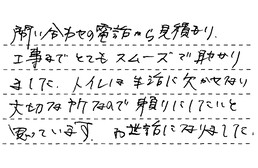 問い合わせの電話から見積もり、
工事までとてもスムーズで助かり
ました。トイレは生活に欠かせない
大切な所なので頼りにしたいと
思っています。お世話になりました。